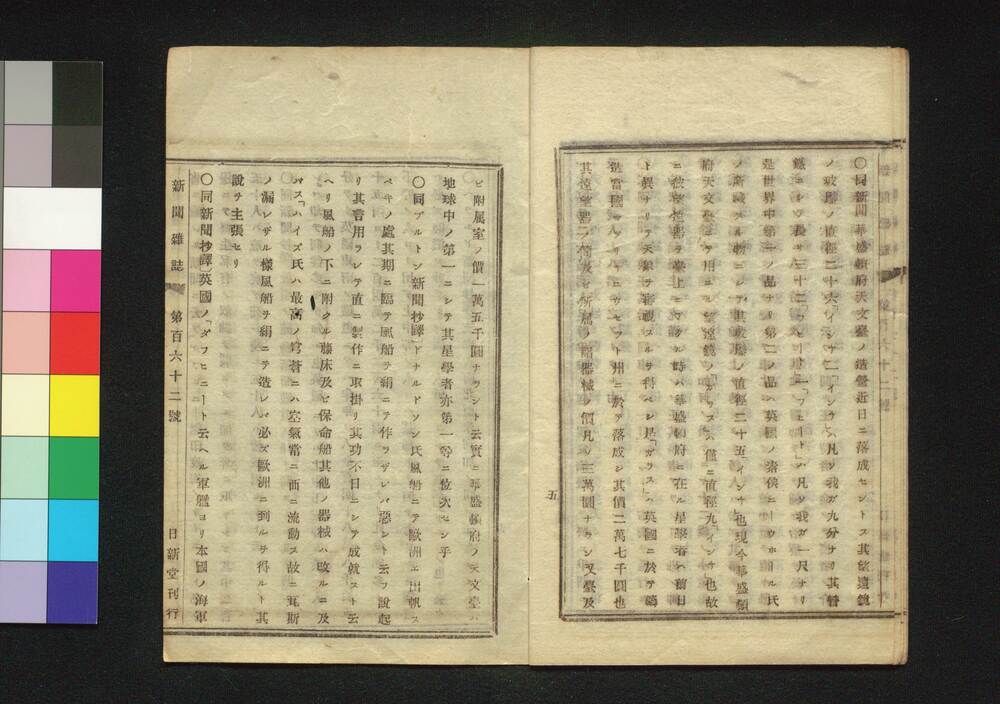 〇同新聞華盛頓府天文臺ノ造營近日ニ落成セントス其望遠鏡
ノ玻瓈ノ直徑二十六「インサ」「インサ」ハ凡ソ我ガ九分ナリ其管
鐵ニシテ長サ三十二「フ
ハ凡ソ我ガ一尺ナリ
是世界中第一ノ品ナリ第二ノ品ハ英國ノ
侯ニーウホール氏
ノ
藏スル物ニシテ其玻瓈ノ直徑二十五「インサ」也現今華盛頓
府天文臺ニテ用ユル望遠鏡ノ「ガラス」ハ僅ニ直徑九「インサ」也故
ニ彼望遠器ヲ臺上ニ
時ハ華盛頓府ニ在ル星學者ハ舊日
ト異ナリテ天象ヲ審視スルヲ得ベシ是「ガラス」ハ英國ニ於テ鑄
造當國マサチユセツト州ニ於テ落成シ其價二萬七千圓也
其遠望器二附及ビ所屬ノ諸器械ノ價凡ソ三萬圓ナラン又臺及
五
ビ附属室ノ價一萬五千圓ナラント云實ニ華盛頓府ノ天文臺ハ
地球中ノ第一ニシテ其星學者亦第一等ニ位次セン乎
〇同アルトン新聞抄譯ドナルドソン氏風船ニテ歐洲エ出帆ス
ベキノ處其期ニ臨テ風船ヲ絹ニテ作ラザレバ惡シト云フ說起
リ其書用ラレテ直ニ製作ニ取掛リ其功不日ニシテ成就スト云
ヘリ風船ノ下ニ附クル藤床及ビ保命船其他ノ器械ハ改ルニ及
バズ「ハイズ氏ハ最高ノ穹蒼ニハ空氣常ニ西ニ流動ス故ニ瓦斯
ノ漏レザル樣風船ヲ絹ニテ造レバ必ズ歐洲ニ到ルヲ得ルト其
說ヲ主張セリ
〇同新聞抄譯英國ノ「ダフヒニート云ヘル軍艦ヨリ本國ノ海軍
新聞雜誌
第百六十二號
日新堂刊行